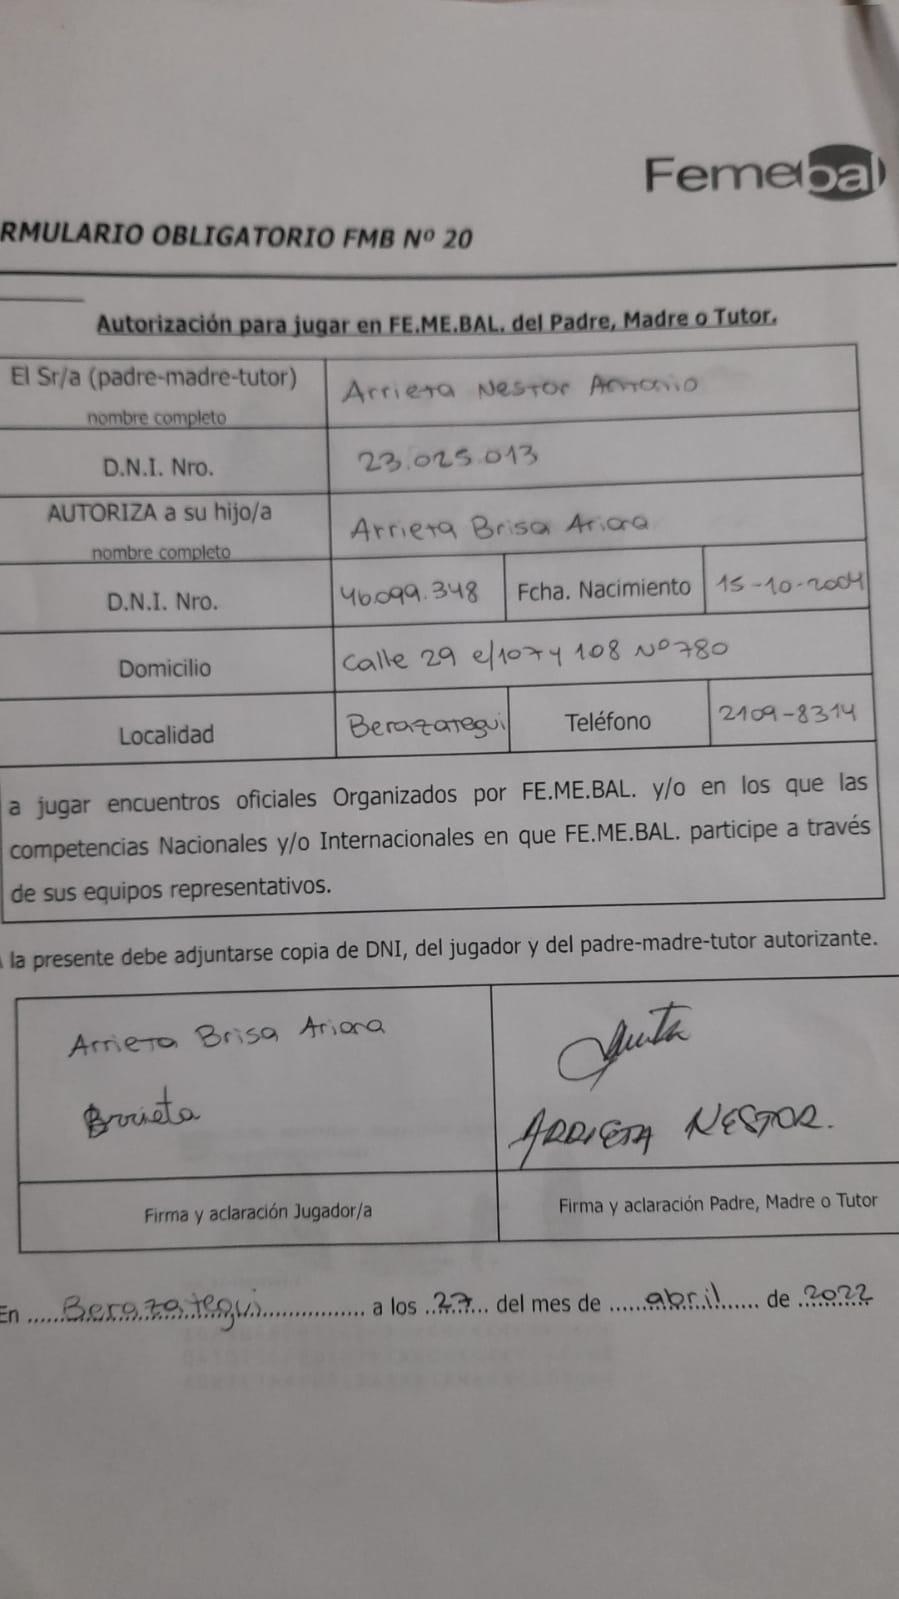 Femebal
RMULARIO OBLIGATORIO FMB Nº 20
Autorización para jugar en FE.ME.BAL. del Padre, Madre o Tutor.
El Sr/a (padre-madre-tutor) Arrieta Nestor Antonio
nombre completo
D.N.I. Nro. 23.025.013
AUTORIZA a su hijo/a Arrieta Brisa Ariana
nombre completo
D.N.I. Nro. 46.099.348 Fcha. Nacimiento 15-10-2004
Domicilio Calle 29 e/107 y 108 Nº 780
Localidad Berazategui Teléfono 2109-8314
a jugar encuentros oficiales Organizados por FE.ME.BAL. y/o en los que las
competencias Nacionales y/o Internacionales en que FE.ME.BAL. participe a través
de sus equipos representativos.
la presente debe adjuntarse copia de DNI, del jugador y del padre-madre-tutor autorizante.
Arrieta Brisa Ariana
Arrieta
ARRIETA NESTOR.
Firma y aclaración Jugador/a Firma y aclaración Padre, Madre o Tutor
En ......Berazategui............... a los ..27... del mes de ......abril...... de ..2022..